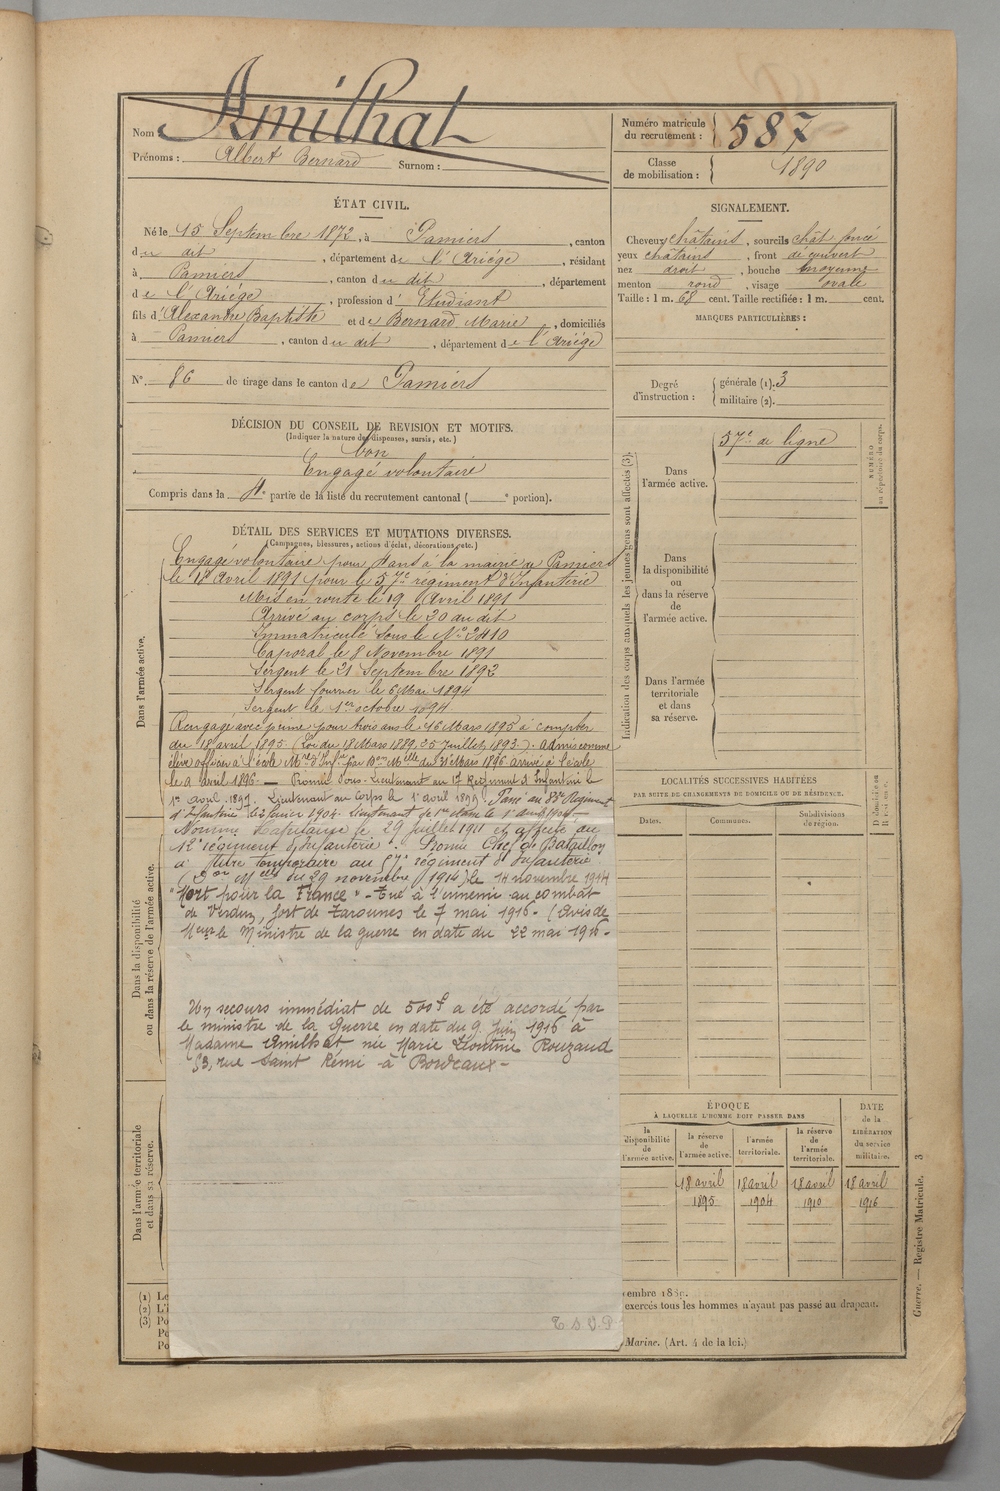 Nom : Amilhat
Prénoms : Albert Bernard Surnom :
Numéro matricule du recrutement : 587
Classe de mobilisation : 1890
ÉTAT CIVIL.
Né le 15 Septembre 1872, à Pamiers, canton
du dit, département de l'Ariége, résidant
à Pamiers, canton du dit, département
de l'Ariége, profession d'Etudiant
fils d'Alexandre Baptiste et de Bernard Marie, domiciliés
à Pamiers, canton du dit, département de l'Ariége
N° 86 de tirage dans le canton de Pamiers
SIGNALEMENT.
Cheveux châtains, sourcils chât foncé
yeux châtains, front découvert
nez droit, bouche moyenne
menton rond, visage ovale
Taille : 1 m. 68 cent. Taille rectifiée : 1 m. cent.
MARQUES PARTICULIÈRES :
Degré d'instruction : générale (1). 3
militaire (2).
DÉCISION DU CONSEIL DE REVISION ET MOTIFS.
(Indiquer la nature des dispenses, sursis, etc.)
bon
Engagé volontaire
Compris dans la 4e partie de la liste du recrutement cantonal ( e portion).
DÉTAIL DES SERVICES ET MUTATIONS DIVERSES.
(Campagnes, blessures, actions d'éclat, décorations, etc.)
Dans l'armée active.
Engagé volontaire pour 4 ans à la mairie de Pamiers
le 18 avril 1891 pour le 57e régiment d'Infanterie
Mis en route le 19 Avril 1891
Arrivé au corps le 20 du dit
Immatriculé sous le No 2410
Caporal le 8 Novembre 1891
Sergent le 21 Septembre 1892
Sergent fourrier le 6 Mai 1894
Sergent le 1er octobre 1894
Rengagé avec prime pour trois ans le 16 Mars 1895 à compter
du 18 avril 1895 (Loi du 18 Mars 1889, 25 Juillet 1893). admis comme
élève officier à l'école Mre d'Infie par Don Mlle du 31 Mars 1896 arrivé à l'école
le avril 1896 — Promu Sous-Lieutenant au 17 Régiment d'Infanterie le
1er avril 1897. Lieutenant au Corps le 1er avril 1899. Passé au Régiment
d'Infanterie 1904. Lieutenant de 1re classe le 1er avril —
Nommé Capitaine le 29 Juillet 1911 et affecté au
12e régiment d'Infanterie. Promu Chef de Bataillon
à titre temporaire au 57e régiment d'Infanterie
(Don Mlle du 29 novembre 1914) le 14 novembre 1914
"Mort pour la France" - Tué à l'ennemi au combat
de Verdun, fort de Tavannes le 7 mai 1916 - (Avis de
Mr le Ministre de la guerre en date du 22 mai 1916 -
Un secours immédiat de 500f a été accordé par
le ministre de la Guerre en date du 9 Juin 1916 à
Madame Amilhat née Marie Léontine Rouzaud
53, rue Saint Rémi à Bordeaux -
T. S. V. P
Dans la disponibilité
ou dans la réserve de l'armée active.
Dans l'armée territoriale
et dans sa réserve.
Indication des corps auxquels les jeunes gens sont affectés (3).
Dans l'armée active.
57e de ligne
NUMÉRO
au répertoire du corps.
Dans la disponibilité ou dans la réserve de l'armée active.
Dans l'armée territoriale et dans sa réserve.
LOCALITÉS SUCCESSIVES HABITÉES
PAR SUITE DE CHANGEMENTS DE DOMICILE OU DE RÉSIDENCE.
Dates. Communes. Subdivisions de région. D. domicile ou R. résidence.
ÉPOQUE
À LAQUELLE L'HOMME DOIT PASSER DANS
DATE de la LIBÉRATION du service militaire.
la disponibilité de l'armée active.
la réserve de l'armée active.
l'armée territoriale.
la réserve de l'armée territoriale.
18 avril 18 avril 18 avril 18 avril
1895 1904 1910 1916
(1) Le
(2) L'I
(3) Po
Po
Po
vembre 1889.
exercés tous les hommes n'ayant pas passé au drapeau.
Marine. (Art. 4 de la loi.)
Guerre. — Registre Matricule. 3